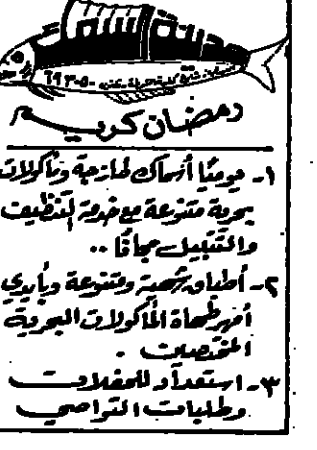 مدينة سمك
رمضان كريم
١- يوميًا أسماك طازجة ومأكولات
بحرية متنوعة مع خدمة التنظيف
والتتبيل مجانًا ..
٢- أطباق شهية ومتنوعة وبأيدي
أمهر طهاة المأكولات البحرية
المختصين .
٣- استعداد للحفلات
وطلبات النواصي